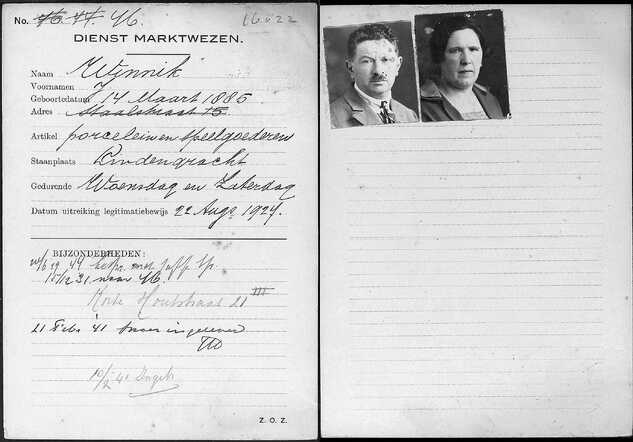 No. 46. 16022
DIENST MARKTWEZEN.
Naam Wijnnik
Voornamen J
Geboortedatum 14 Maart 1885
Adres Staalstraat 15
Artikel porcelein en speelgoederen
Staanplaats Lindengracht
Gedurende Woensdag en Zaterdag
Datum uitreiking legitimatiebewijs 22 Augs 1924.
BIJZONDERHEDEN:
15/12 31 naar 46.
Korte Houtstraat 21 III
21 Febr '41
Z. O. Z.